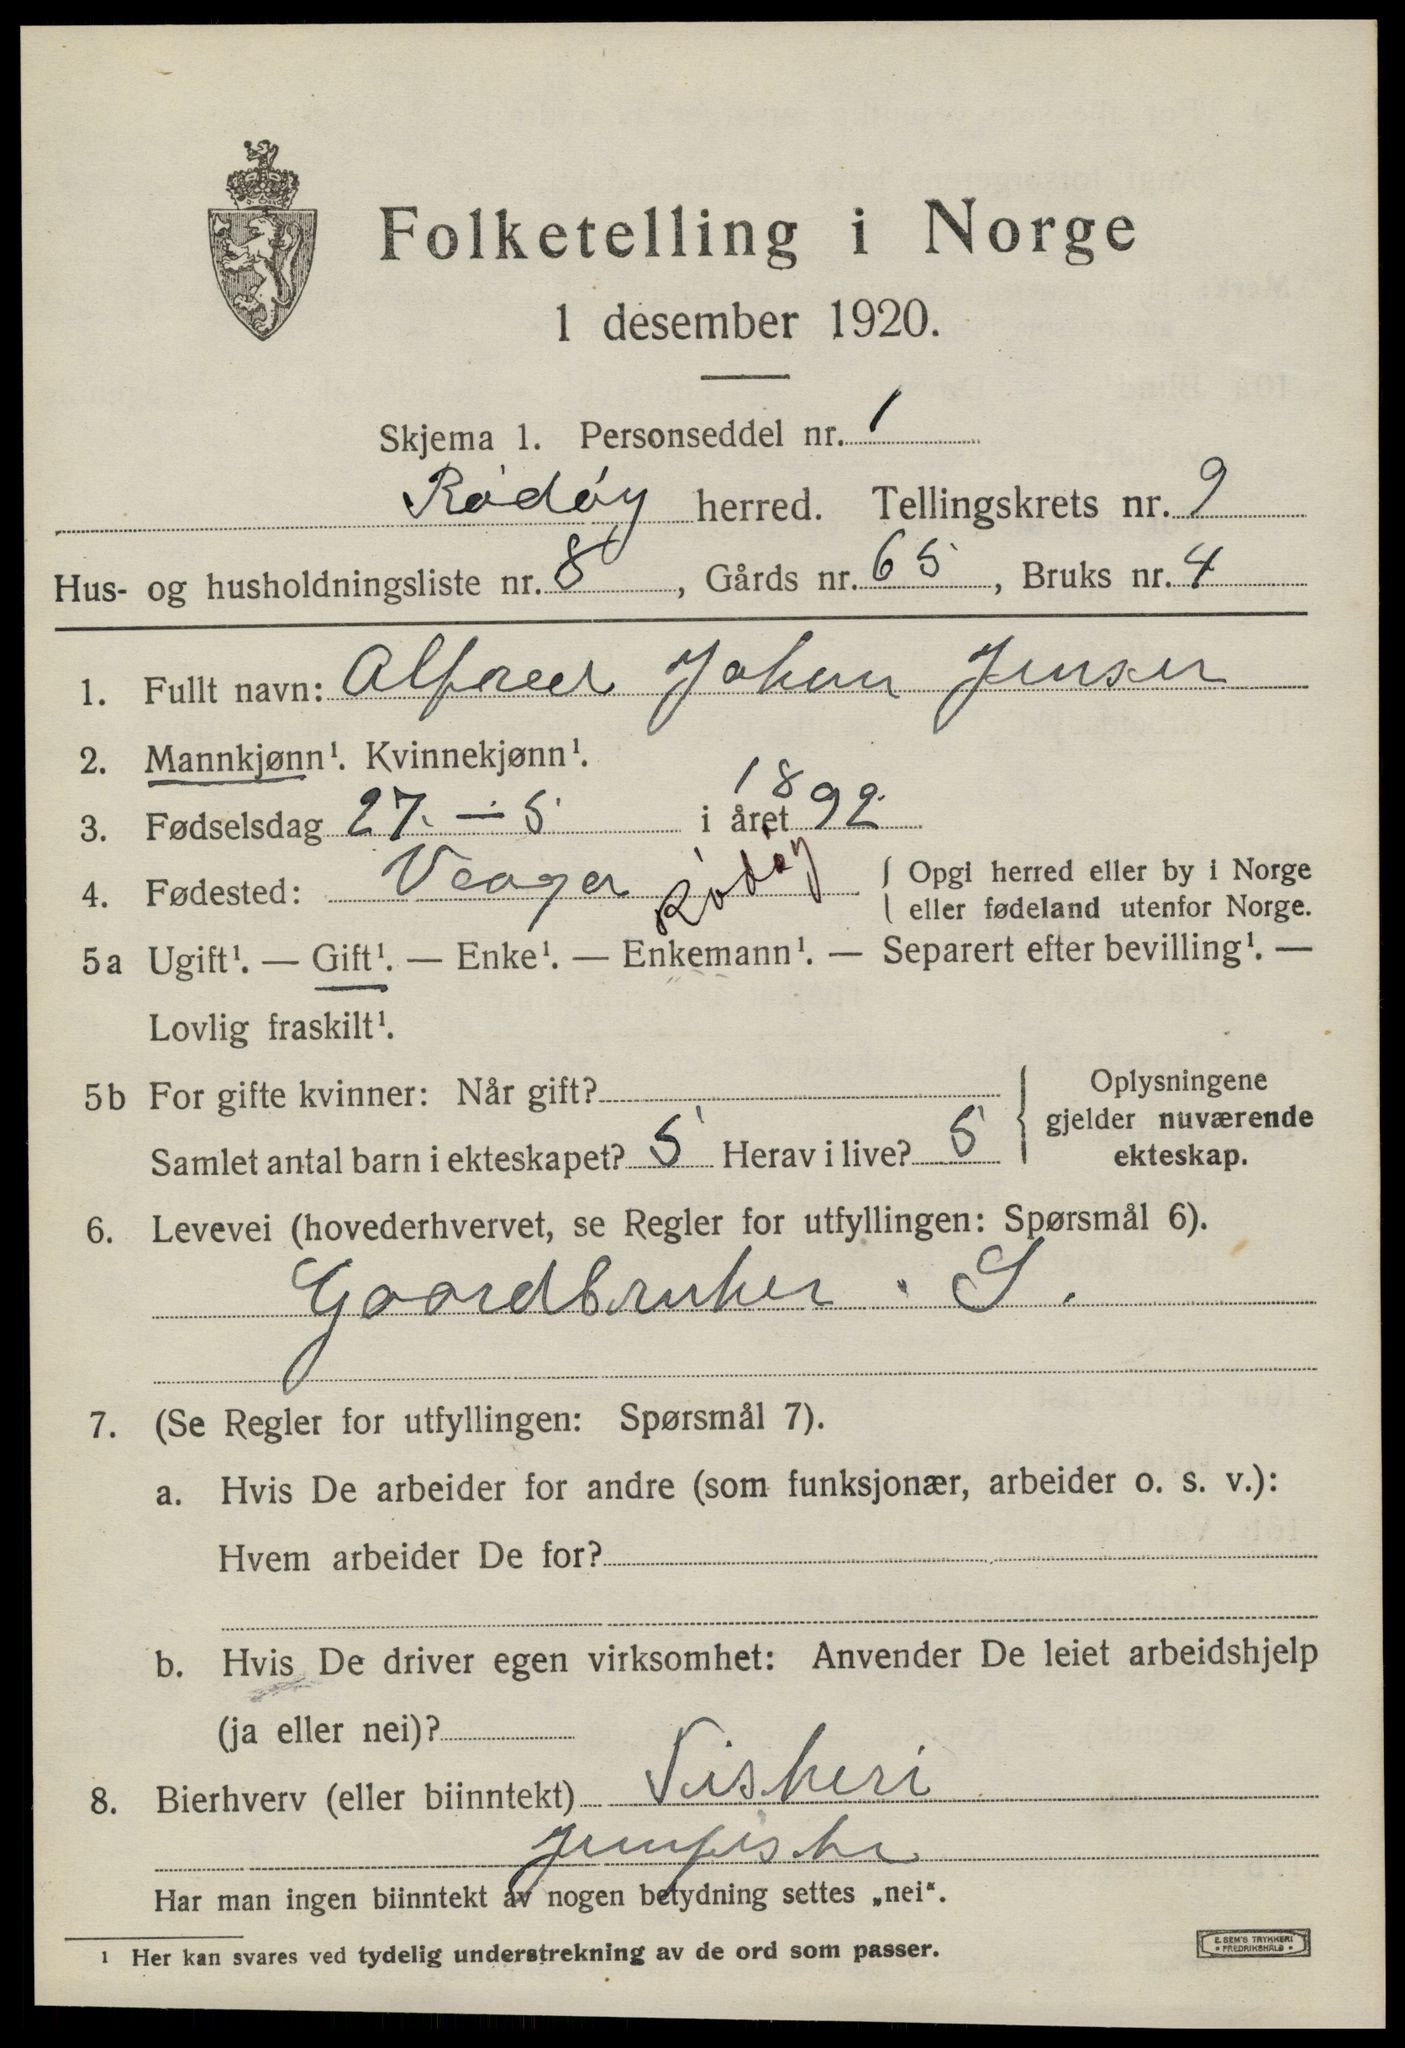 Folketelling i Norge
1 desember 1920.
Skjema 1. Personseddel nr. 1
Rødøy herred. Tellingskrets nr. 9
Hus- og husholdningsliste nr. 8, Gårds nr. 65, Bruks nr. 4
1. Fullt navn: Alfred Johan Jensen
2. Mannkjønn¹. Kvinnekjønn¹.
3. Fødselsdag 27. – 5 i året 1892
4. Fødested: Vaager Rødøy { Opgi herred eller by i Norge
eller fødeland utenfor Norge.
5a Ugift¹. — Gift¹. — Enke¹. — Enkemann¹. — Separert efter bevilling¹. —
Lovlig fraskilt¹.
5b For gifte kvinner: Når gift?
Samlet antal barn i ekteskapet? 5 Herav i live? 5
{ Oplysningene
gjelder nuværende
ekteskap.
6. Levevei (hovederhvervet, se Regler for utfyllingen: Spørsmål 6).
Gaardbruker. S.
7. (Se Regler for utfyllingen: Spørsmål 7).
a. Hvis De arbeider for andre (som funksjonær, arbeider o. s. v.):
Hvem arbeider De for?
b. Hvis De driver egen virksomhet: Anvender De leiet arbeidshjelp
(ja eller nei)?
8. Bierhverv (eller biinntekt) Fiskeri
Har man ingen biinntekt av nogen betydning settes „nei“.
¹ Her kan svares ved tydelig understrekning av de ord som passer.
E. SEM'S TRYKKERI
• FREDRIKSHALD •